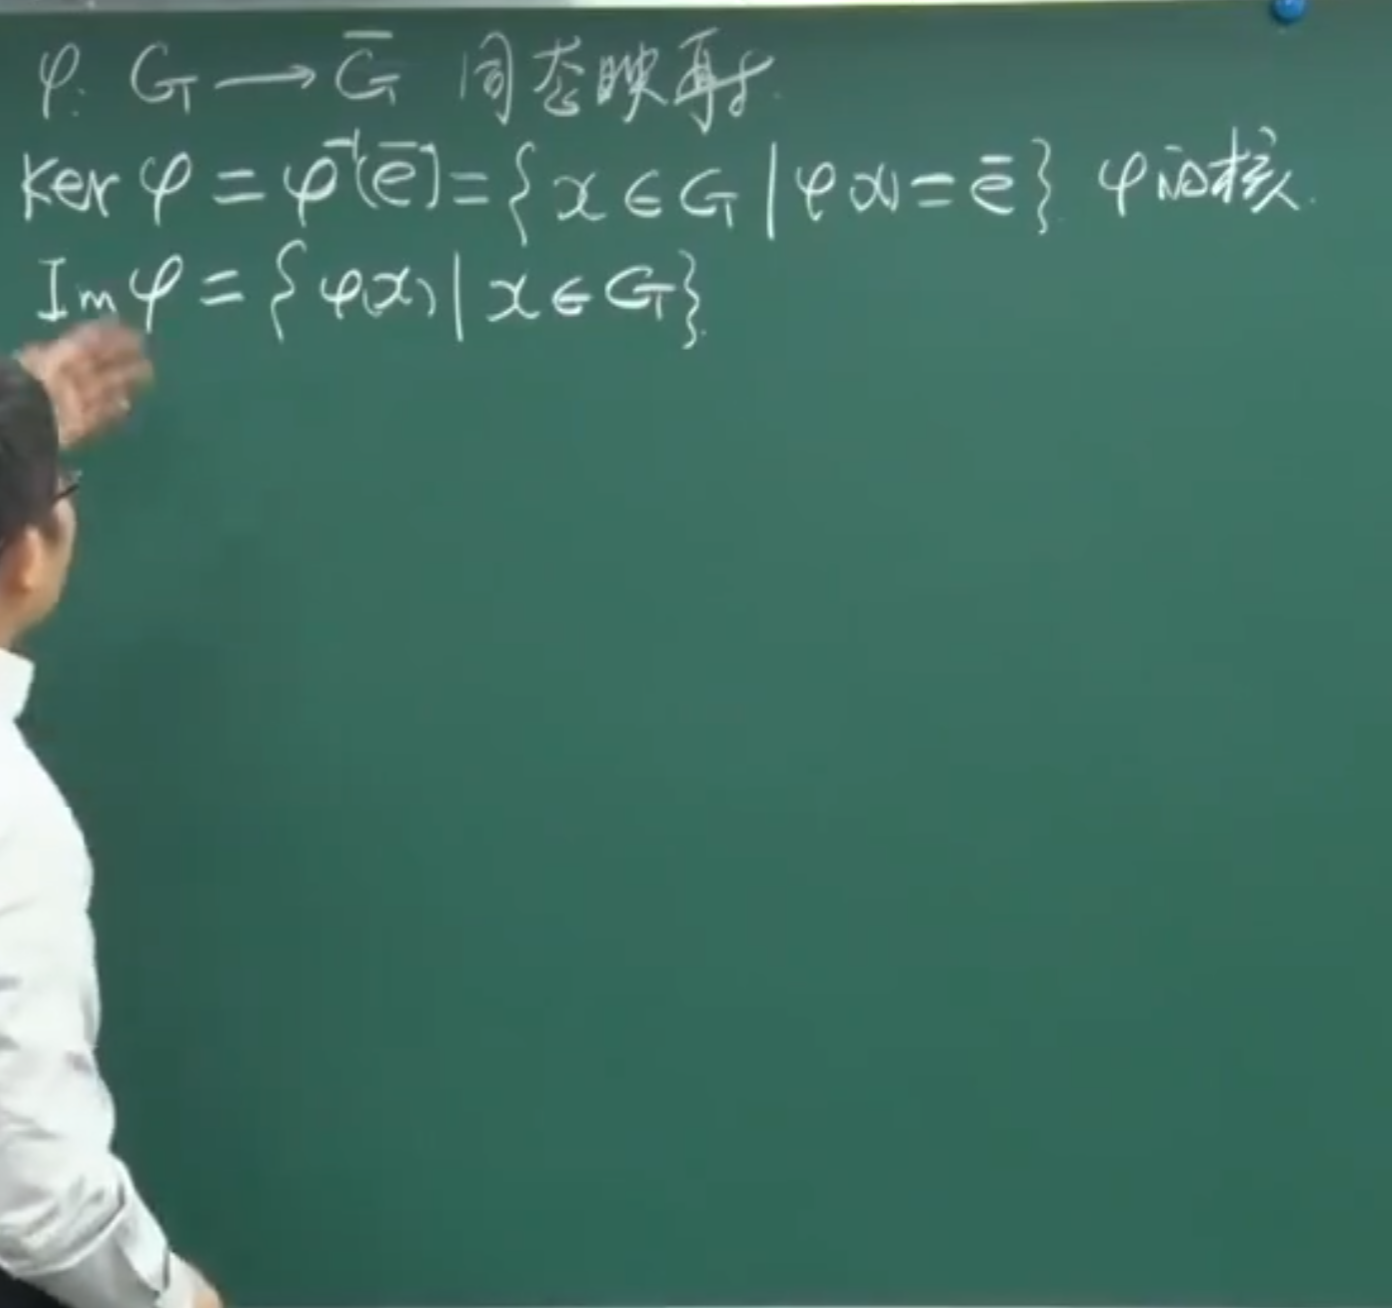 φ: G → G̅ 同态映射.
Ker φ = φ⁻¹(e̅) = { x ∈ G | φ(x) = e̅ } φ的核.
Im φ = { φ(x) | x ∈ G }.